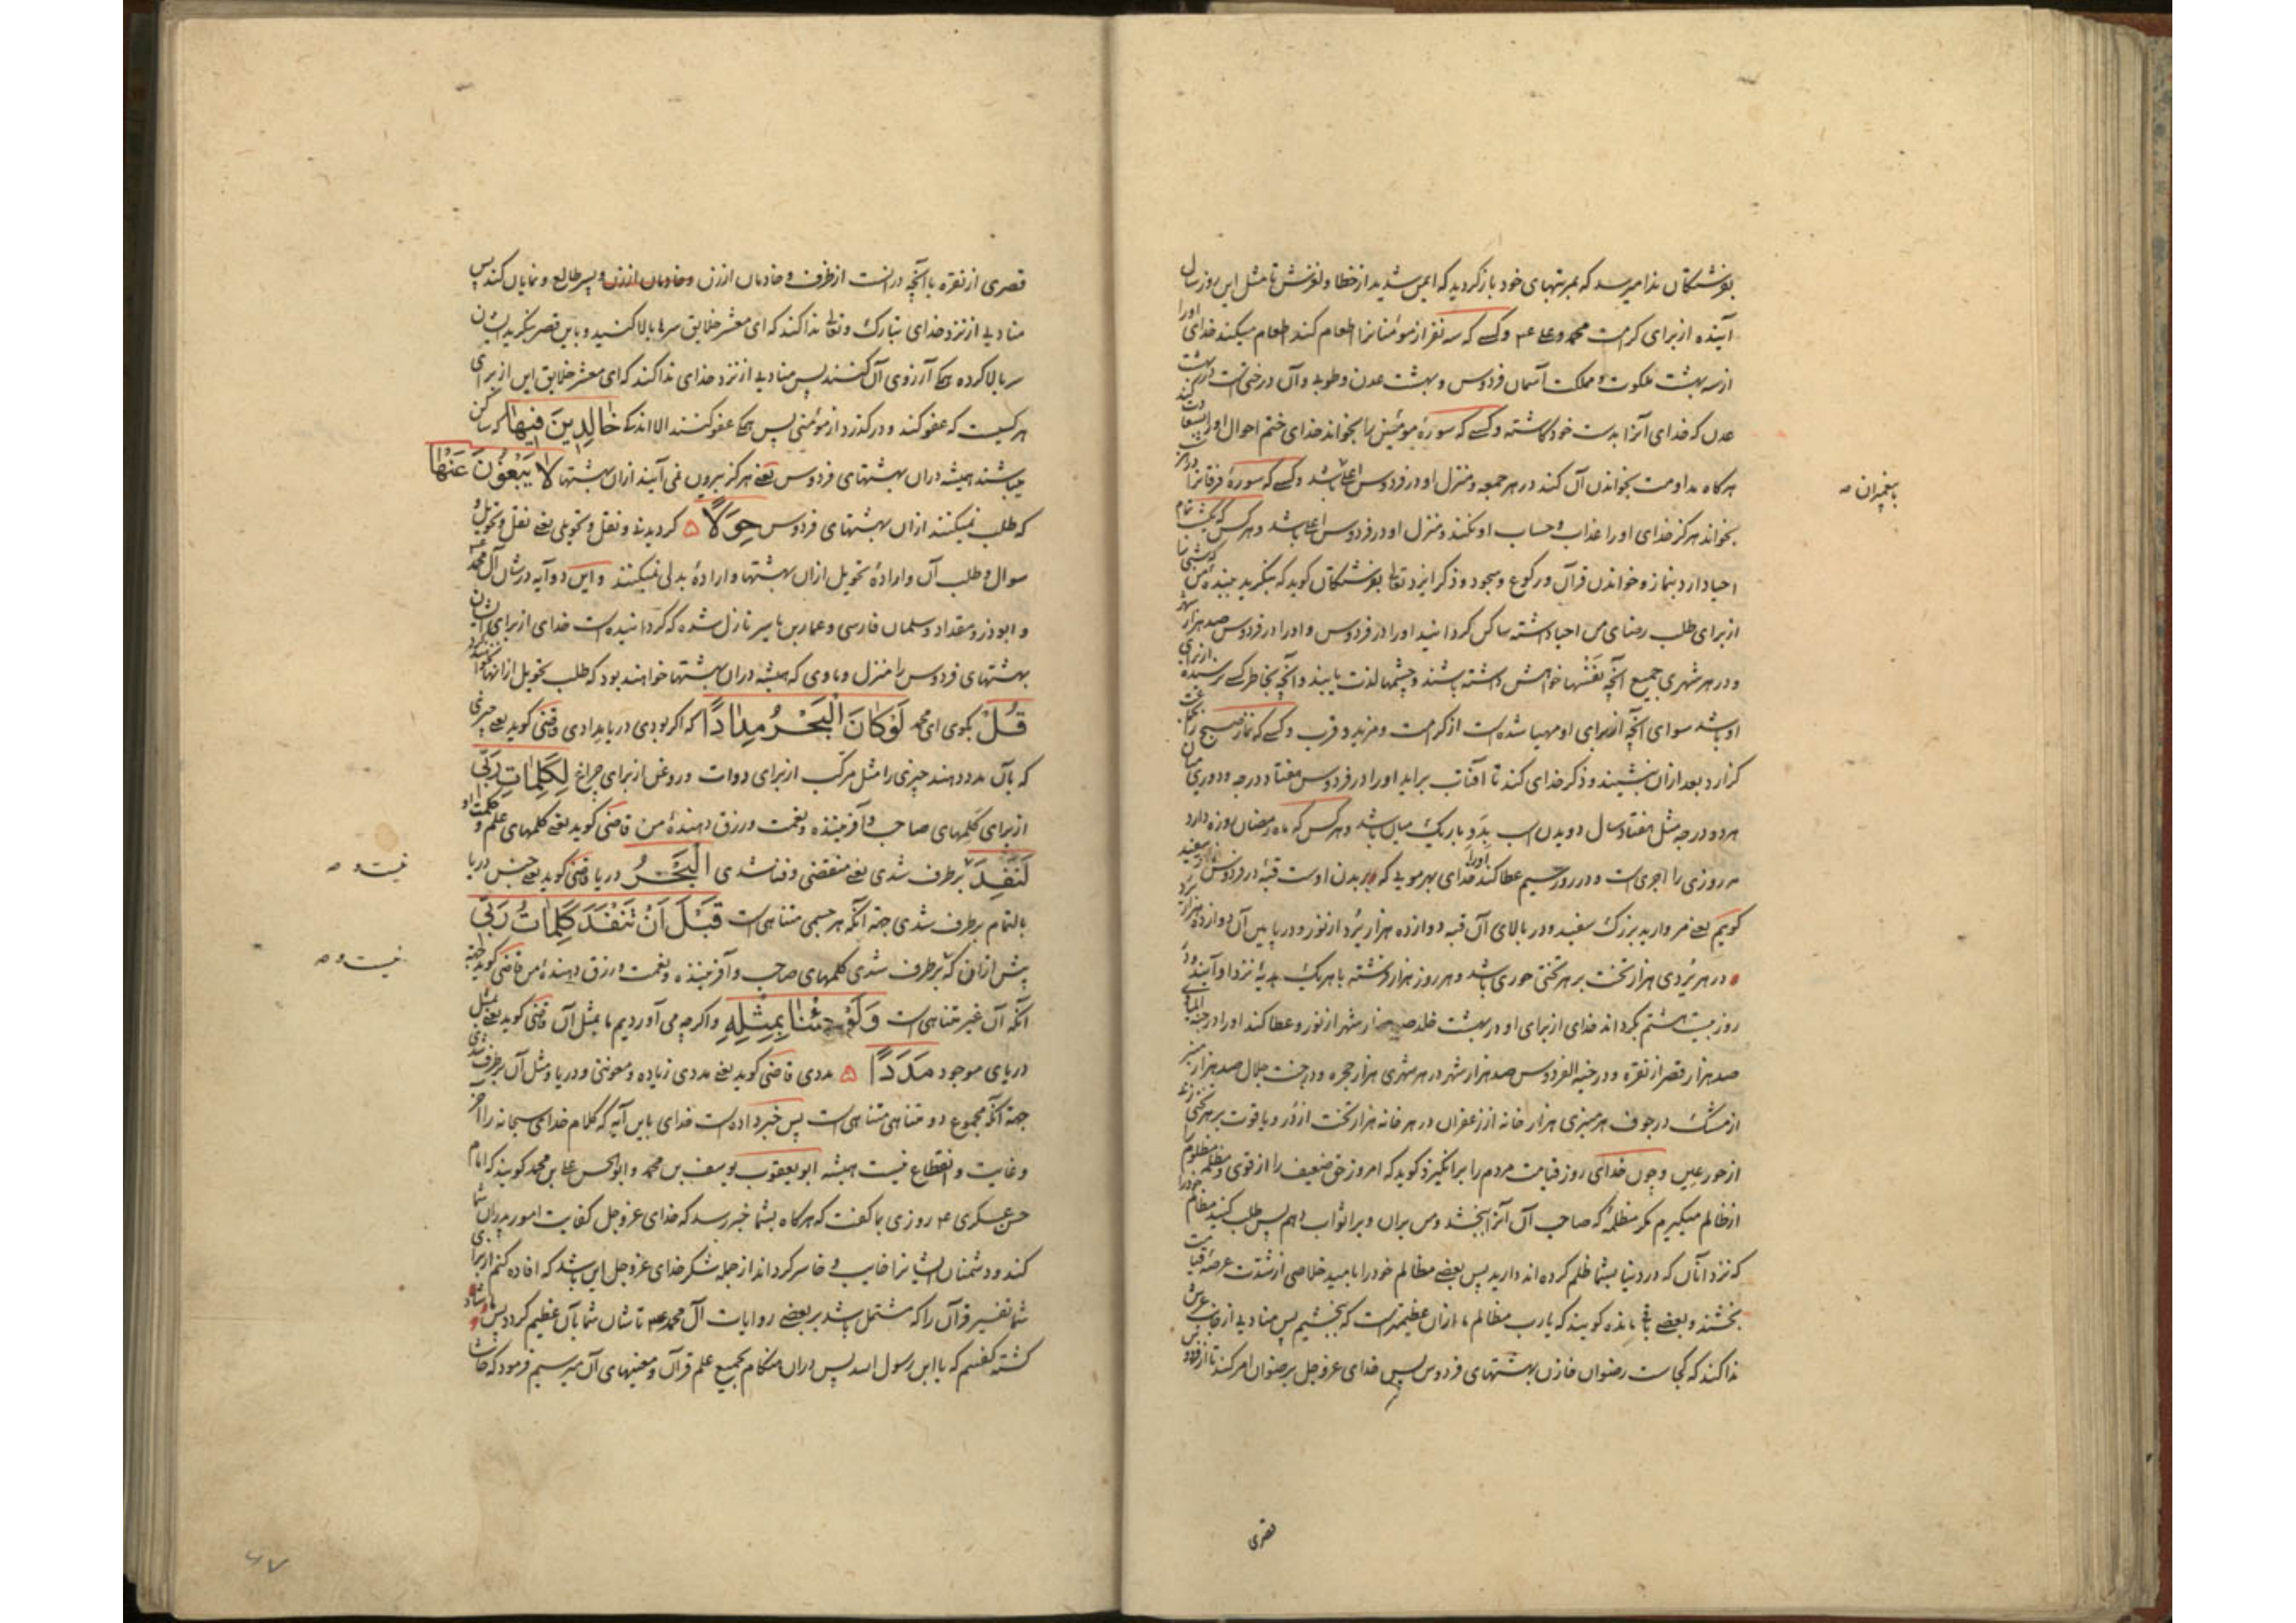 بفرشتگان ندا میرسد که بمرتبهای خود باز کردید که ایمن شدید از خطا و لغزش تا مثل این روز سال
آینده از برای کرامت محمد و علی ع۴ و کسے که سه نفر از مومنانرا اطعام کند اطعام میکند خدای اورا
از سه بهشت ملکوت و مملکت آسمان فردوس و بهشت عدن و طوبے و آن درختیست در بهشت
عدن که خدای آنرا بدست خود کاشته و کسے که سورهٔ مومنین را بخواند خدای ختم احوال او
هرکاه مداومت بخواندن آن کند در هر جمعه و منزل او در فردوس اعلی باشد و کسے که سورهٔ فرقانرا
با پیغمبران صه
بخواند هرکز خدای او را عذاب و حساب او نکند و منزل او در فردوس اعلی باشد و هر کس که یکشب تمام
احیا دارد بنماز و خواندن قرآن و رکوع و سجود و ذکر ایزد تعالی بفرشتکان کوید که بنکرید ببندهٔ من
از برای طلب رضای من احیا داشته ساکن کردانید او را در فردوس و او را در فردوس صد هزار شهر
و در هر شهری جمیع آنچه نفسها خواهش داشته باشند و چشمها لذت یابند و آنچه بخاطر کسے نرسیده
او باشد سوای آنچه از برای او مهیا شده است از کرامت و مزید و قرب و کسے که نماز صبح را
کزارد بعد ازان بنشیند و ذکر خدای کند تا آفتاب براید او را در فردوس هفتاد درجه و دوری میان
هر دو درجه مثل هفتاد سال دویدن اسب بدو باریک میان باشد و هر کس که ماه رمضان روزه دارد
هر روزی را اجری است و در روز سیم عطا کند اورا خدای بهر مویے که بر بدن اوست قبهٔ در فردوس
کویم یعنے مروارید بزرک سفید و در بالای آن قبه دوازده هزار بُرد از نور و در پایین آن دوازده هزار
در هر بُردی هزار تخت بر هر تختی حوری باشد و هر روز هزار فرشته با هریک هدیهٔ نزد او آیند و در
روز بیست هشتم کرداند خدای از برای او در بهشت خلد صد هزار شهر از نور و عطا کند او را در جنة الماوی
صد هزار قصر از نقره و در جنة الفردوس صد هزار شهر در هر شهری هزار حجره و در جنت جلال صد هزار منبر
از مشک در جوف هر منبری هزار خانه از زعفران در هر خانه هزار تخت از دُر و یاقوت بر هر تختی زنے
از حور عین و چون خدای روز قیامت مردم را برانکیزد کوید که امروز حق ضعیف را از قوی و مظلمه مظلوم را
از ظالم میکیرم مکر مظلمهٔ که صاحب آن آنرا ببخشد و من بران ویرا ثواب دهم پس طلب کنید مظالم خود را
که نزد آنان که در دنیا بشما ظلم کرده اند دارید پس بعضے مظالم خود را بامید خلاصی از شدت عرصهٔ قیامت
بخشند و بعضے باقی مانده کویند که یا رب مظالم ما ازان عظیمتر است که ببخشیم پس منادیے از جانب عرش
ندا کند که کجاست رضوان خازن بهشتهای فردوس پس خدای عزوجل برضوان امر کند تا از فردوس
قصری
قصری از نقره با آنچه در انست از ظرف و خادمان از زن و خادمان از زن و پسر طالع و نمایان کند پس
منادیے از نزد خدای تبارک و تعالی ندا کند که ای معشر خلایق سرها بالا کنید و باین قصر بنکرید ایشان
سر بالا کرده همکے آرزوی آن کنند پس منادیے از نزد خدای ندا کند که ای معشر خلایق این از برای
هر کسیست که عفو کند و در کذرد از مومنی پس همکے عفو کنند الا اندکے خالِدِینَ فیها که ساکن
میباشند همیشه دران بهشتهای فردوس یعنے هرکز بیرون نمی آیند ازان بهشتها لا یَبْغُونَ عَنْها
که طلب نمیکنند ازان بهشتهای فردوس حِوَلًا ۵ کردیدن و نقل و تحویلی یعنے نقل و تحویل و
سوال و طلب آن و ارادهٔ تحویل ازان بهشتها و ارادهٔ بدلی نمیکنند و این دو آیه در شان آل محمد
و ابوذر و مقداد و سلمان فارسی و عمار بن یاسر نازل شده که کردانیده است خدای از برای ایشان
بهشتهای فردوس را منزل و ماوی که همیشه دران بهشتها خواهند بود که طلب تحویل از انها نکنند
قُلْ بکوی ای محمد لَوْ کانَ الْبَحْرُ مِدادًا که اکر بودی دریا مدادی قاضی کوید یعنے چیزی
که بآن مدد دهند چیزی را مثل مرکب از برای دوات و روغن از برای چراغ لِکَلِماتِ رَبّی
از برای کلمهای صاحب و آفریننده و نعمت و رزق دهندهٔ من قاضی کوید یعنے کلمهای علم و حکمت او
لَنَفِدَ برطرف شدی یعنے منقضی و فنا شدی الْبَحْرُ دریا قاضی کوید یعنے جنس دریا
نیست و صه
بالتمام برطرف شدی جهة آنکه هر جسمی متناهی است قَبْلَ اَنْ تَنْفَدَ کَلِماتُ رَبّی
پیش ازان که برطرف شدی کلمهای صاحب و آفریننده و نعمت و رزق دهندهٔ من قاضی کوید جهة
نیست و صه
آنکه آن غیر متناهی است وَلَوْ جِئْنا بِمِثْلِهِ واکر چه می آوردیم ما بمثل آن قاضی کوید یعنے بمثل
دریای موجود مَدَدًا ۵ مددی قاضی کوید یعنے مددی زیاده و معونتی و دریا و مثل آن برطرف شدی
جهة آنکه مجموع دو متناهی متناهی است پس خبر داده است خدای باین آیه که کلام خدای سبحانه را آخر
و غایت و انقطاع نیست همیشه ابو یعقوب یوسف بن محمد و ابو الحسن علی بن محمد کویند که امام
حسن عسکری ۴ روزی بما کفت که هرکاه بشما خبر رسد که خدای عزوجل کفایت امور پدران شما
کند و دشمنان ایشانرا خایب و خاسر کرداند از جمله شکر خدای عزوجل این باشد که افاده کنم از برای
شما تفسیر قرآن را که مشتمل باشد بر بعضے روایات آل محمد ع۴ تا شان شما بآن عظیم کردد پس ما شاد
کشته کفتیم که یا ابن رسول الله پس دران هنکام بجمیع علم قرآن و معنیهای آن میرسیم فرمود که حاشا
۶۷